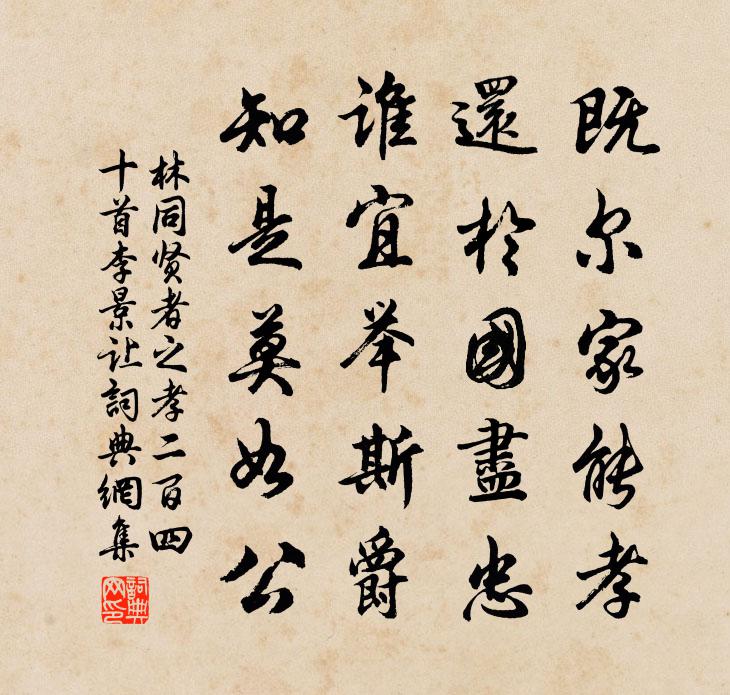 既尔家能孝
還於國盡忠
谁宜举斯爵
知是莫如公
林同贤者之孝二百四
十首李景让詞典網集
詞典
网印